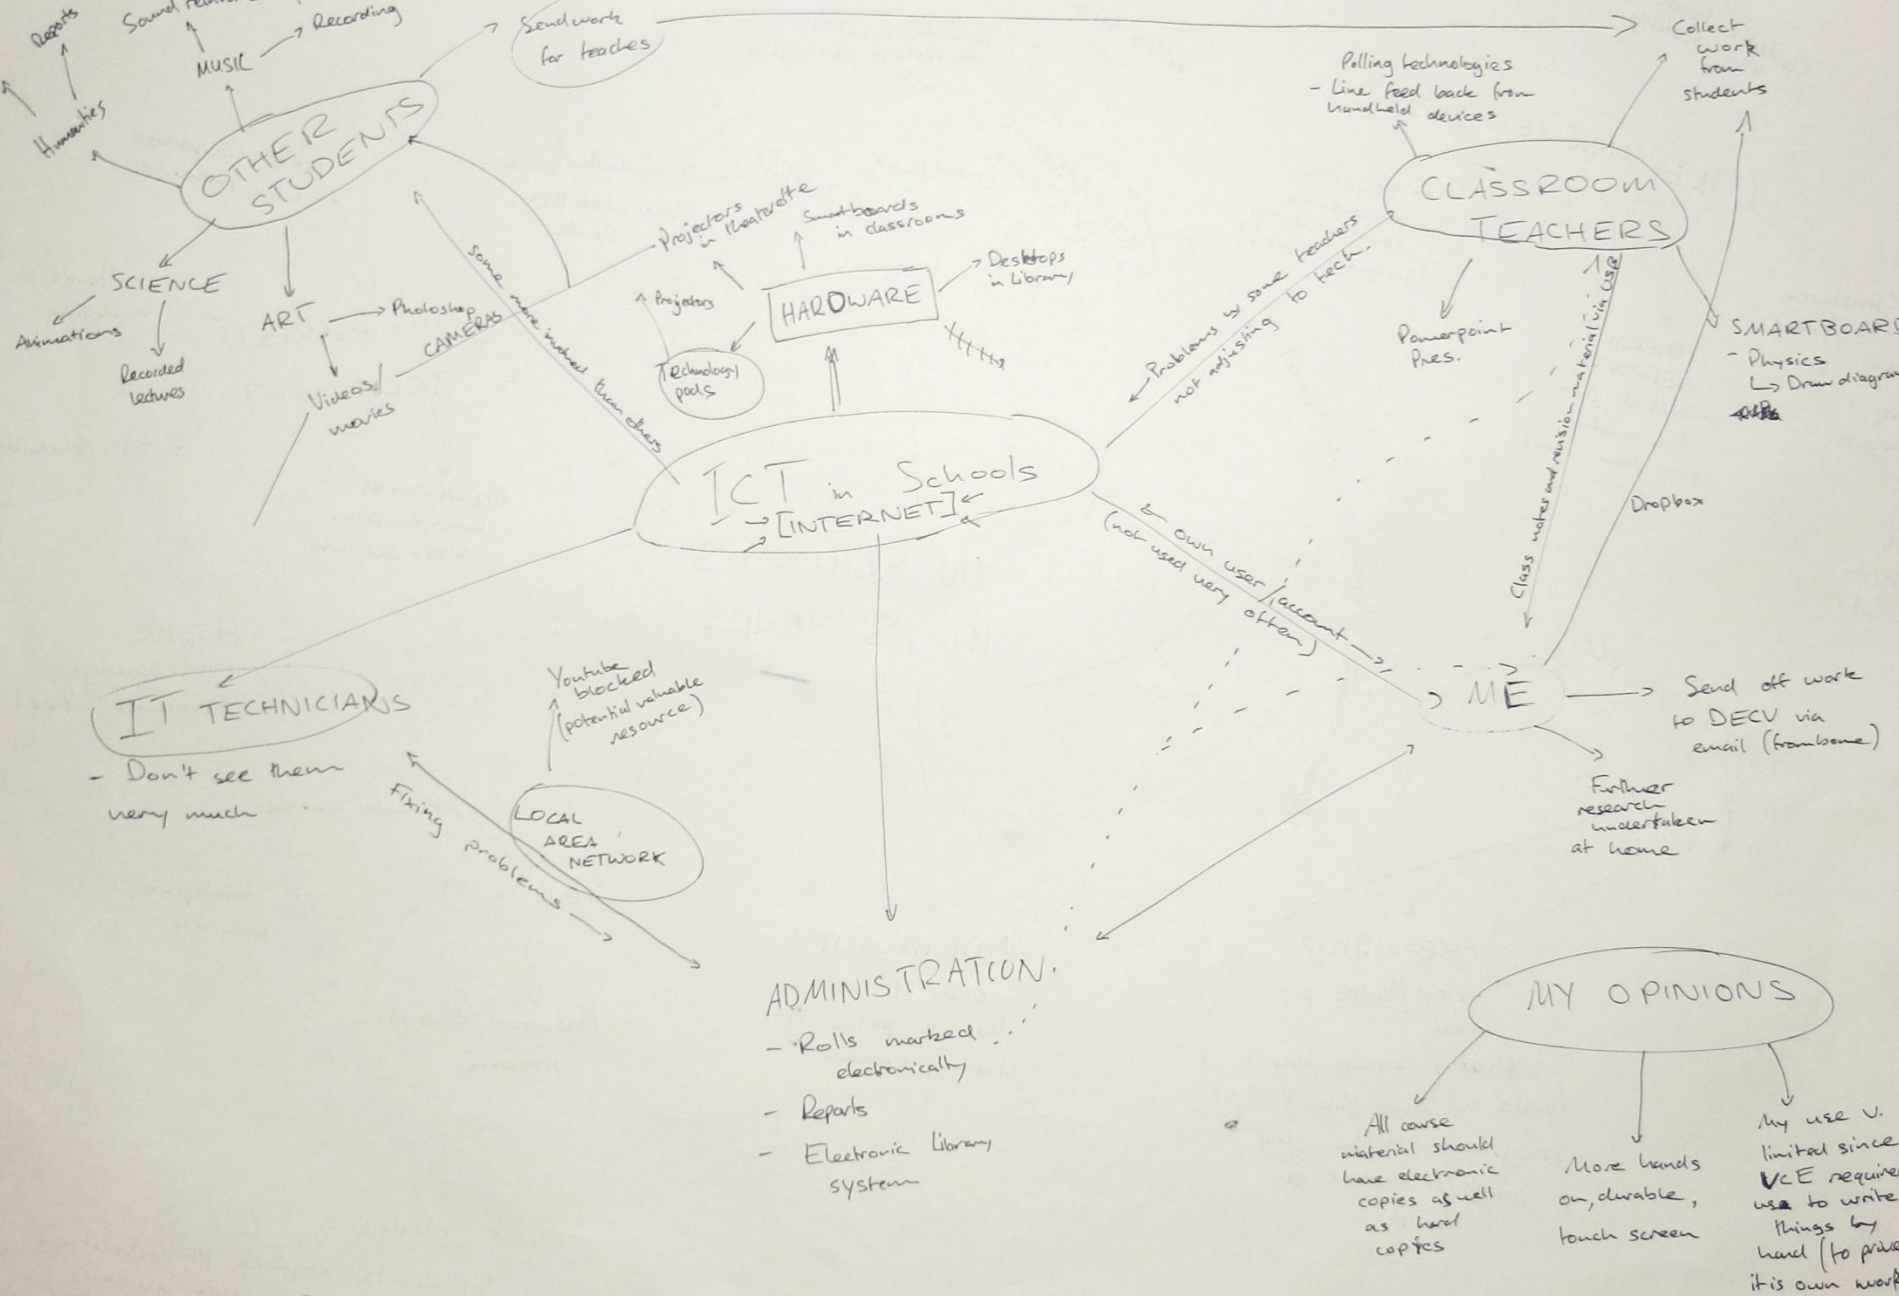 Reports
Sound
Recording
MUSIC
Humanities
OTHER
STUDENTS
Send work
for teaches
SCIENCE
Animations
Recorded
lectures
ART
Photoshop
Videos/
movies
CAMERAS
some more involved than others
Projectors
in theaterette
Smartboards
in classrooms
Desktops
in Library
HARDWARE
Projectors
Technology
pods
Polling technologies
- Line feed back from
handheld devices
Collect
work
from
students
CLASSROOM
TEACHERS
Problems by some teachers
not adjusting to tech.
Powerpoint
Pres.
SMARTBOARD
- Physics
↳ Draw diagram
Class notes and revision material via USB
Dropbox
ICT in Schools
→ [INTERNET] ←
← own user / account →
(not used very often)
ME
Send off work
to DECV via
email (from home)
Further
research
undertaken
at home
IT TECHNICIANS
- Don't see them
very much
Youtube
blocked
(potential valuable
resource)
LOCAL
AREA
NETWORK
Fixing problems →
ADMINISTRATION.
- Rolls marked
electronically
- Reports
- Electronic Library
system
MY OPINIONS
All course
material should
have electronic
copies as well
as hard
copies
More hands
on, durable,
touch screen
My use v.
limited since
VCE require
us to write
things by
hand (to prove
it is own work